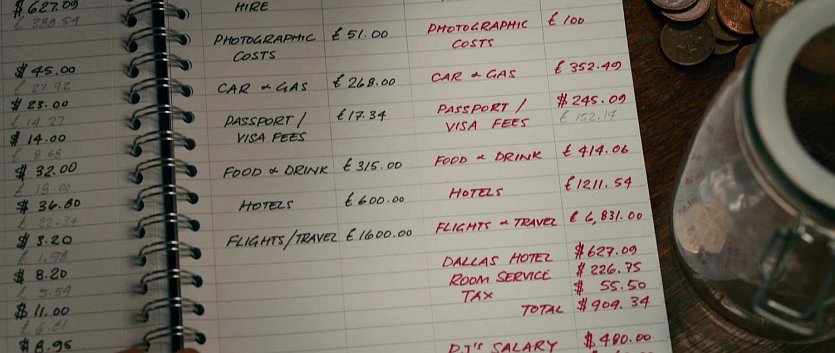 $627.09
£ 388.54
$45.00
£ 27.92
$23.00
£ 14.27
$14.00
£ 8.68
$32.00
£ 19.00
$36.80
£ 22.34
$3.20
£ 1.98
$8.20
£ 5.54
$11.00
£ 6.81
$8.95
HIRE
PHOTOGRAPHIC £ 51.00
COSTS
CAR & GAS £ 268.00
PASSPORT / £17.34
VISA FEES
FOOD & DRINK £ 315.00
HOTELS £ 600.00
FLIGHTS/TRAVEL £ 1600.00
PHOTOGRAPHIC £ 100
COSTS
CAR & GAS £ 352.49
PASSPORT / $245.09
VISA FEES £ 152.14
FOOD & DRINK £ 414.06
HOTELS £1211.54
FLIGHTS & TRAVEL £ 6,831.00
DALLAS HOTEL $627.09
ROOM SERVICE $ 226.75
TAX $ 55.50
TOTAL $909.34
DJ'S SALARY $480.00